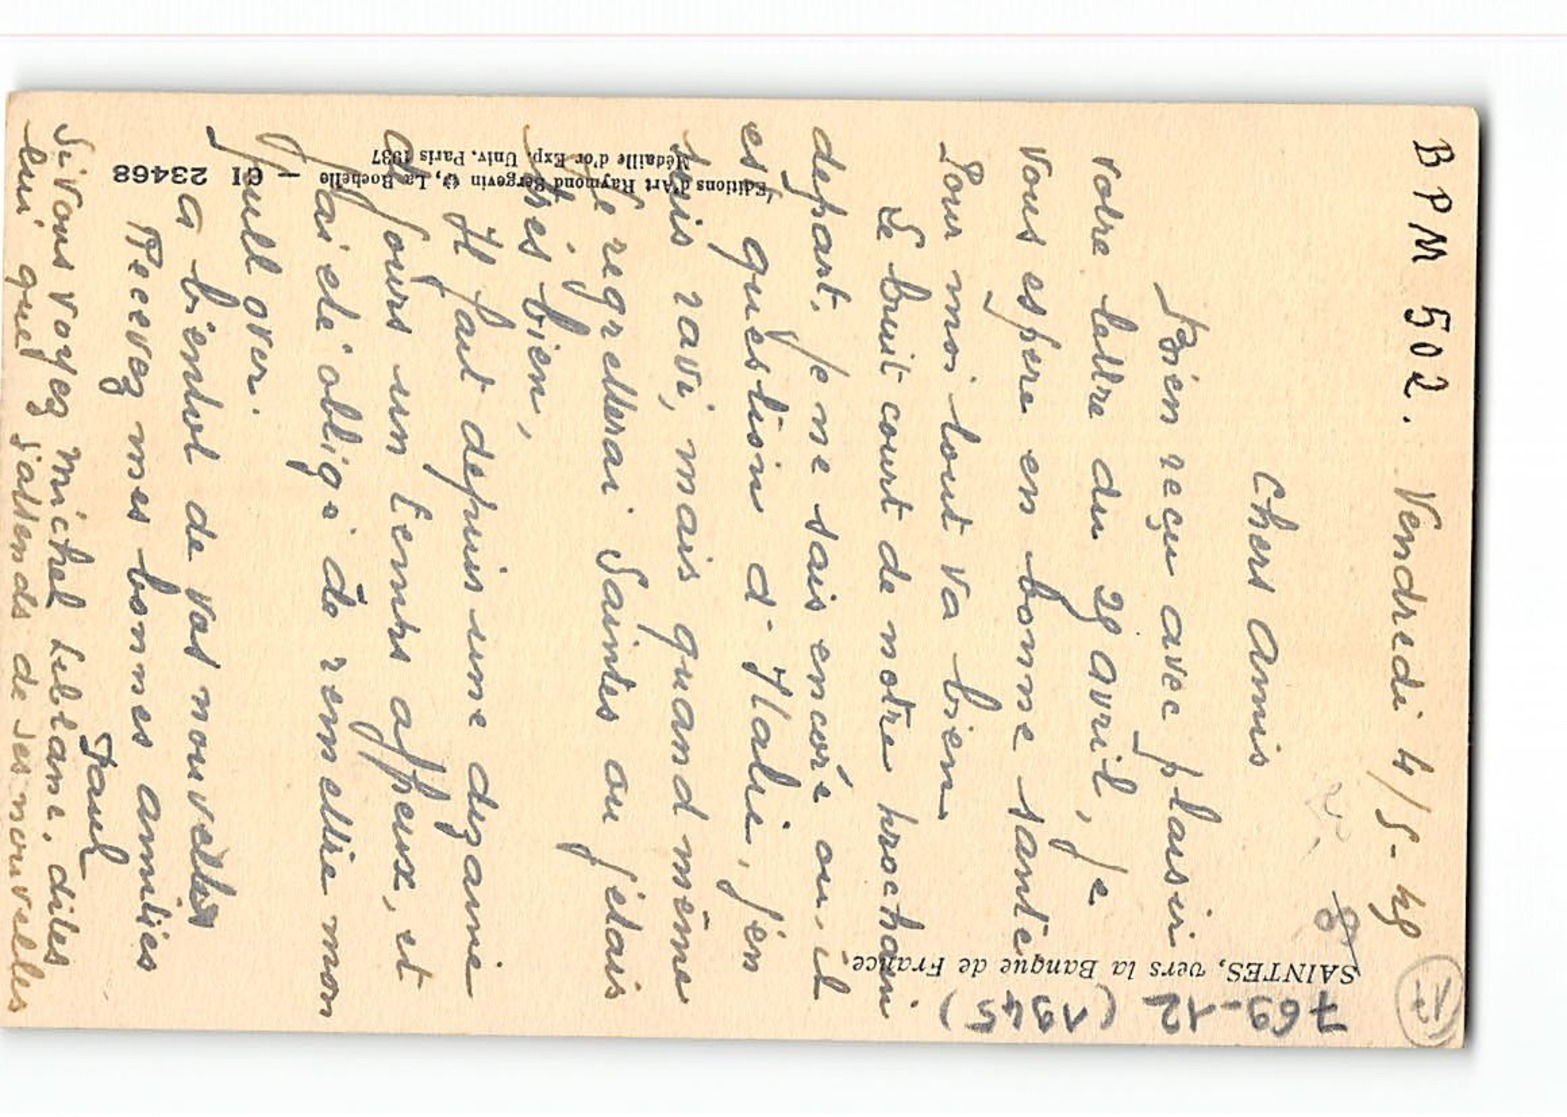 BPM 502. Vendredi 4/5-45
Chers Amis
Bien reçu avec plaisir
votre lettre du 29 avril, je
vous espere en bonne santée
Pour moi tout va bien
Le bruit court de notre prochain
depart. Je ne sais encore ou, il
est question d'Italie, j'en
suis ravi, mais quand même
je regretterai Saintes ou j'étais
très bien,
Il fait depuis une dizaine
de jours un temps affreux, et
j'ai été obligé de remettre mon
pull over.
A bientot de vos nouvelles
Recevez mes bonnes amitiés
Paul
Si vous voyez Michel Leblanc. dites
lui que j'attends de ses nouvelles
SAINTES, vers la Banque de France
769-12 (1945)
17
Editions d'Art Raymond Bergevin, La Rochelle — CI 23468
Médaille d'or Exp. Univ. Paris 1937